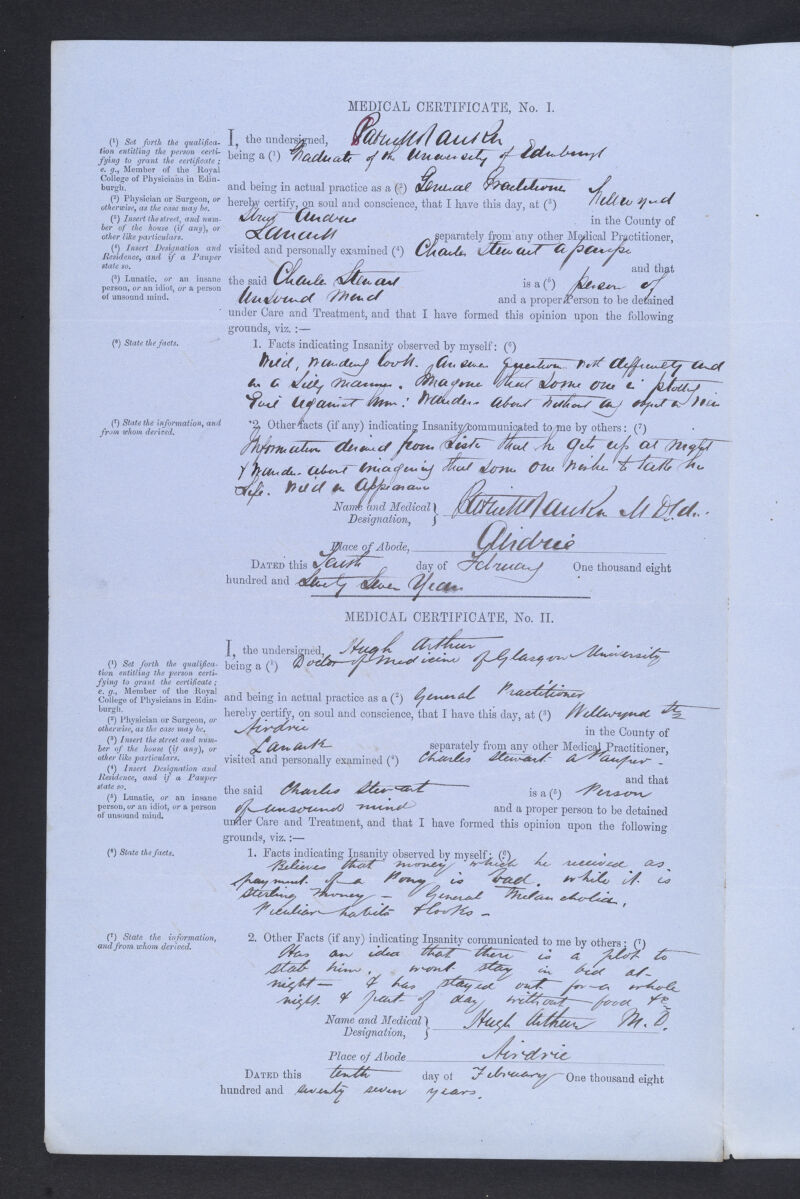 MEDICAL CERTIFICATE, No. I.
(¹) Set forth the qualifica-
tion entitling the person certi-
fying to grant the certificate;
e. g., Member of the Royal
College of Physicians in Edin-
burgh.
(²) Physician or Surgeon, or
otherwise, as the case may be.
(³) Insert the street, and num-
ber of the house (if any), or
other like particulars.
(⁴) Insert Designation and
Residence, and if a Pauper
state so.
(⁵) Lunatic, or an insane
person, or an idiot, or a person
of unsound mind.
I, the undersigned,
being a (¹) Graduate of the University of Edinburgh
and being in actual practice as a (²) General Practitioner
hereby certify, on soul and conscience, that I have this day, at (³) Wellwynd
Street Airdrie in the County of
Lanark separately from any other Medical Practitioner,
visited and personally examined (⁴) Charles Stewart a pauper
and that
the said Charles Stewart is a (⁵) person of
Unsound Mind and a proper Person to be detained
under Care and Treatment, and that I have formed this opinion upon the following
grounds, viz. :—
(⁶) State the facts.
1. Facts indicating Insanity observed by myself: (⁶)
Wild, wandering look. Answers question with difficulty and
in a silly manner. Imagines that some one is plotting
Evil against him: Wanders about without any object in view
(⁷) State the information, and
from whom derived.
2. Other facts (if any) indicating Insanity communicated to me by others: (⁷)
Information derived from Sister that he gets up at night
& wanders about imagining that some one wishes to take his
Life. Wild in appearance
Name and Medical
Designation, M D Ed.
Place of Abode, Airdrie
DATED this Tenth day of February One thousand eight
hundred and Seventy Seven Years
MEDICAL CERTIFICATE, No. II.
(¹) Set forth the qualifica-
tion entitling the person certi-
fying to grant the certificate;
e. g., Member of the Royal
College of Physicians in Edin-
burgh.
(²) Physician or Surgeon, or
otherwise, as the case may be.
(³) Insert the street and num-
ber of the house (if any), or
other like particulars.
(⁴) Insert Designation and
Residence, and if a Pauper
state so.
(⁵) Lunatic, or an insane
person, or an idiot, or a person
of unsound mind.
I, the undersigned, Hugh Arthur
being a (¹) Doctor of Medicine of Glasgow University
and being in actual practice as a (²) General Practitioner
hereby certify, on soul and conscience, that I have this day, at (³) Wellwynd St
Airdrie in the County of
Lanark separately from any other Medical Practitioner,
visited and personally examined (⁴) Charles Stewart a Pauper -
and that
the said Charles Stewart is a (⁵) Person
of unsound mind and a proper person to be detained
under Care and Treatment, and that I have formed this opinion upon the following
grounds, viz. :—
(⁶) State the facts.
1. Facts indicating Insanity observed by myself: (⁶)
Believes that money which he received as
payment of a Pony is bad. while it is
sterling money - General Melancholia,
Peculiar habits & looks -
(⁷) State the information,
and from whom derived.
2. Other Facts (if any) indicating Insanity communicated to me by others: (⁷)
Has an idea that there is a plot to
stab him. wont stay in bed at
night - & has stayed out for a whole
night & part of day without food &c
Name and Medical
Designation, Hugh Arthur M. D.
Place of Abode Airdrie
DATED this tenth day of February One thousand eight
hundred and seventy seven years.